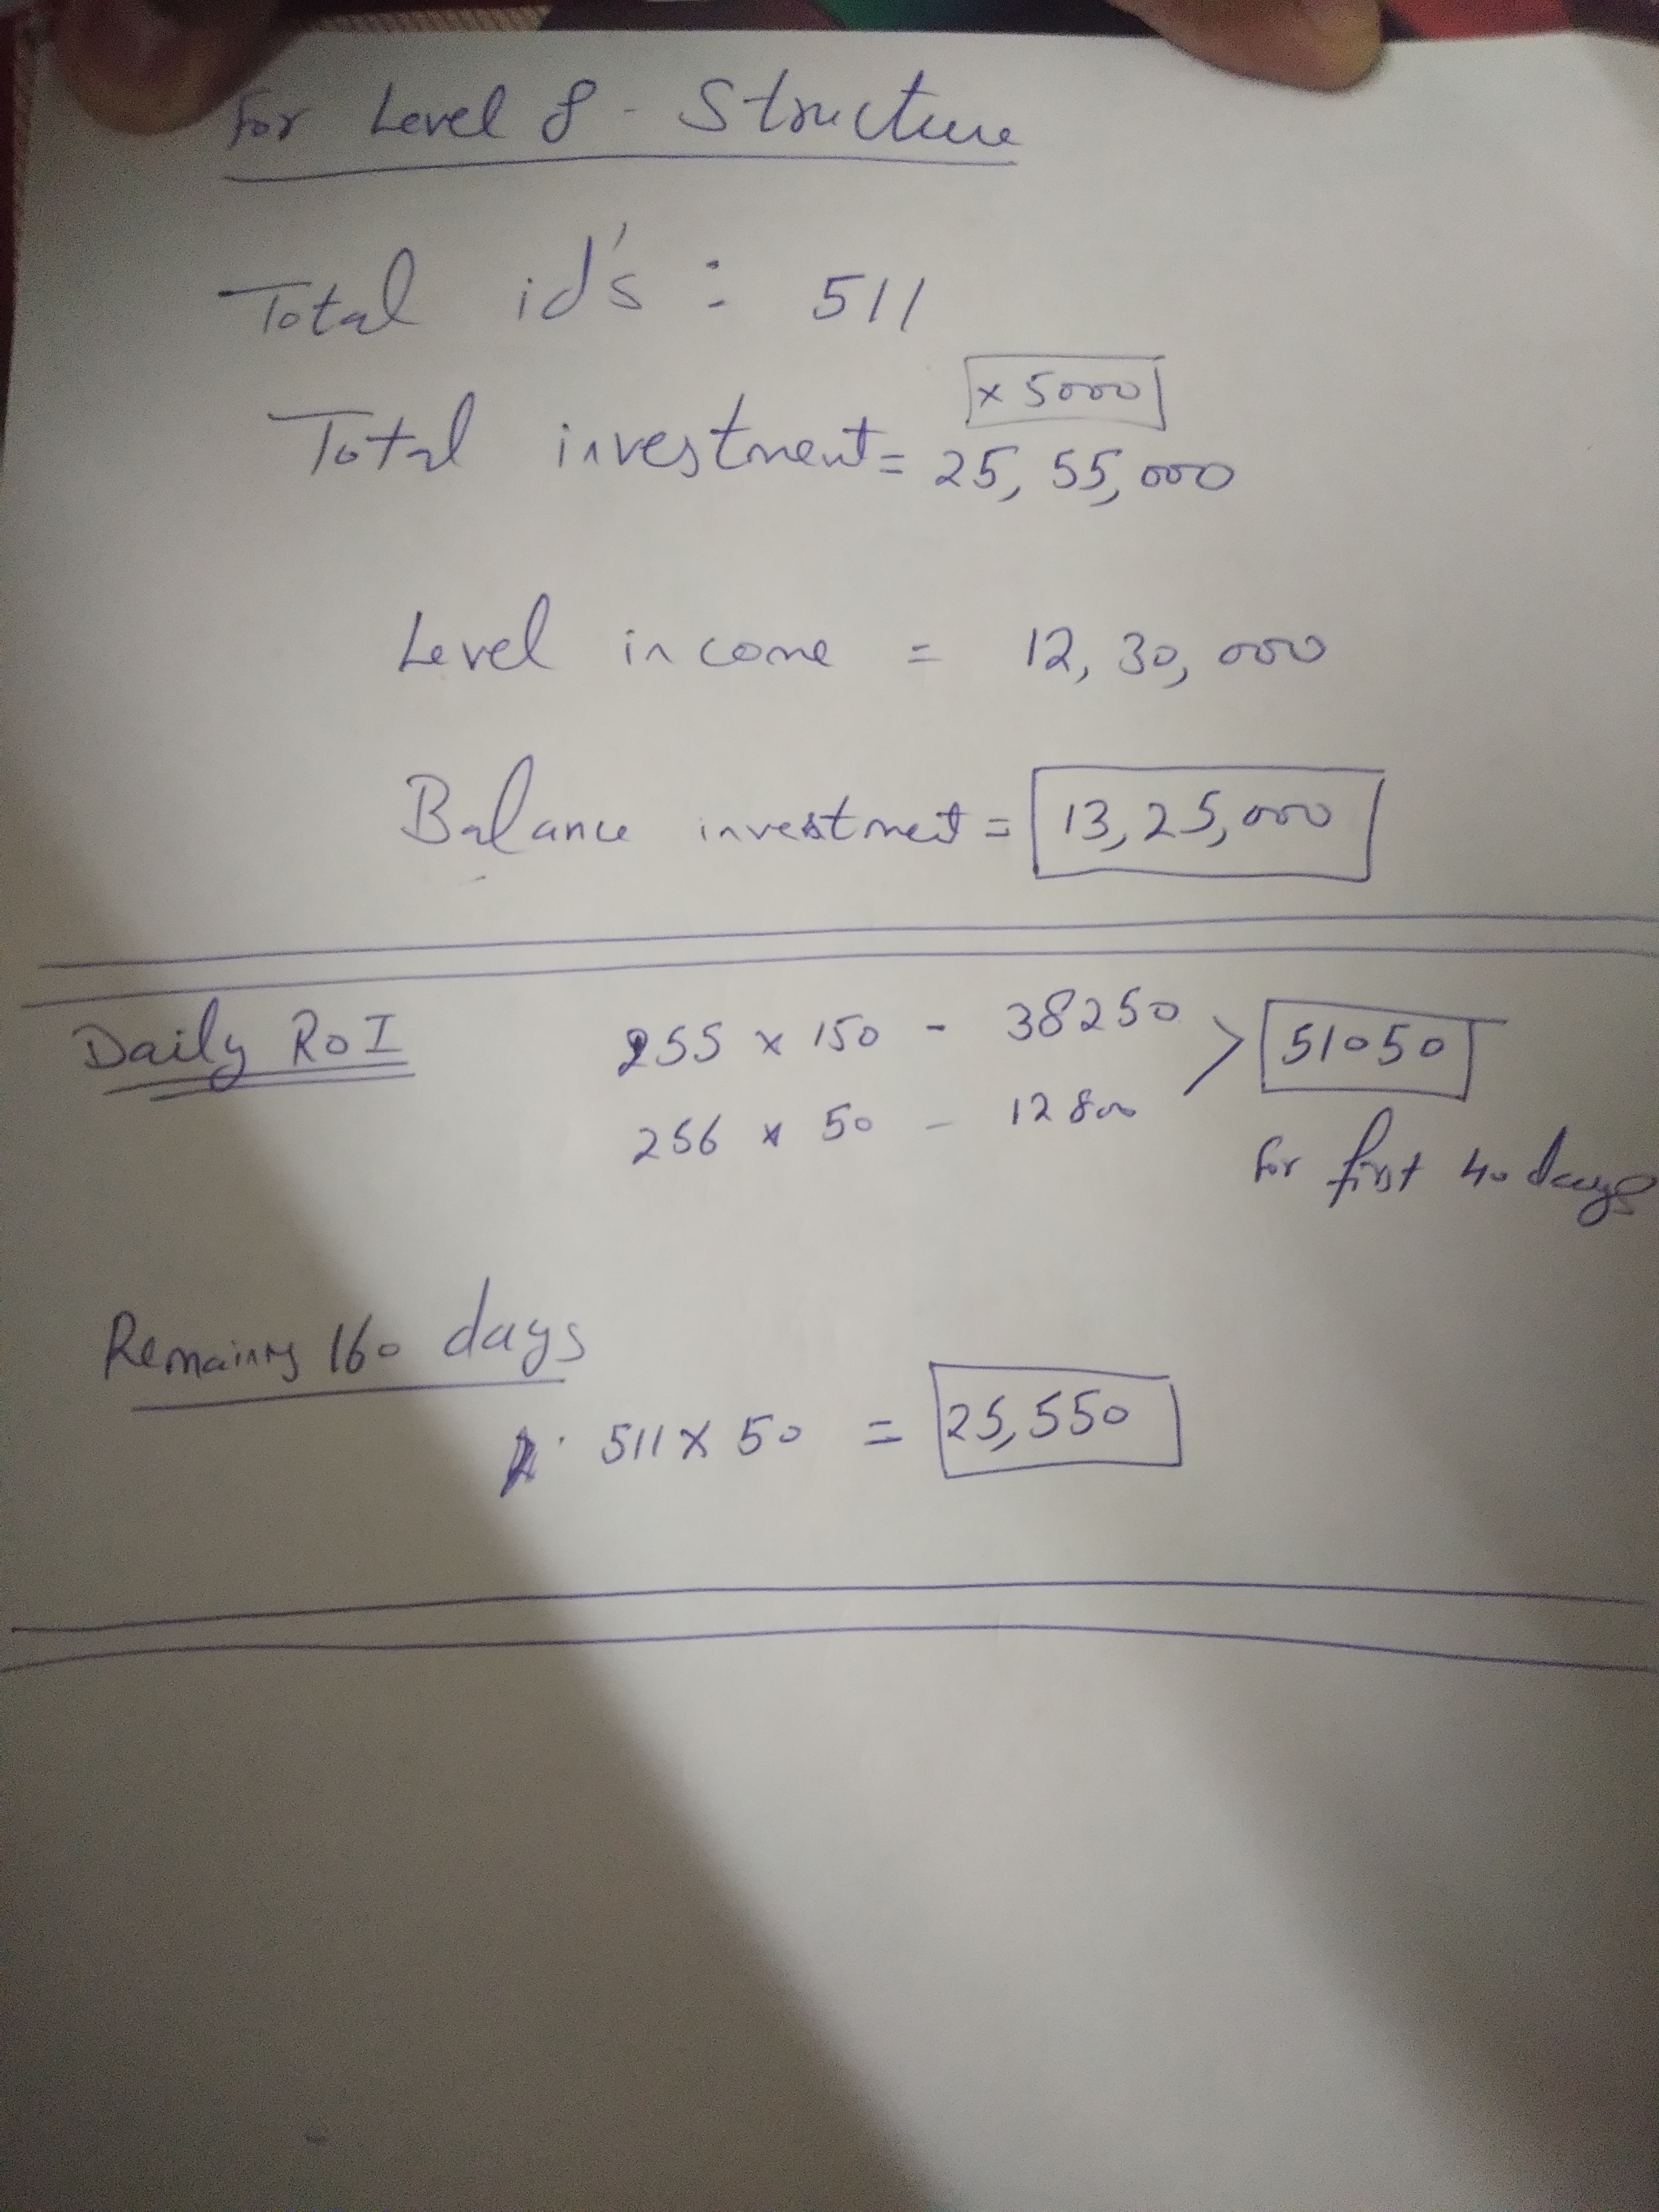 For Level 8 - Structure
Total id's : 511
x 5000
Total investment = 25,55,000
Level income = 12,30,000
Balance investment = 13,25,000
Daily RoI
255 x 150 - 38250
256 x 50 - 12800
51050
for first 40 days
Remaining 160 days
511 x 50 = 25,550